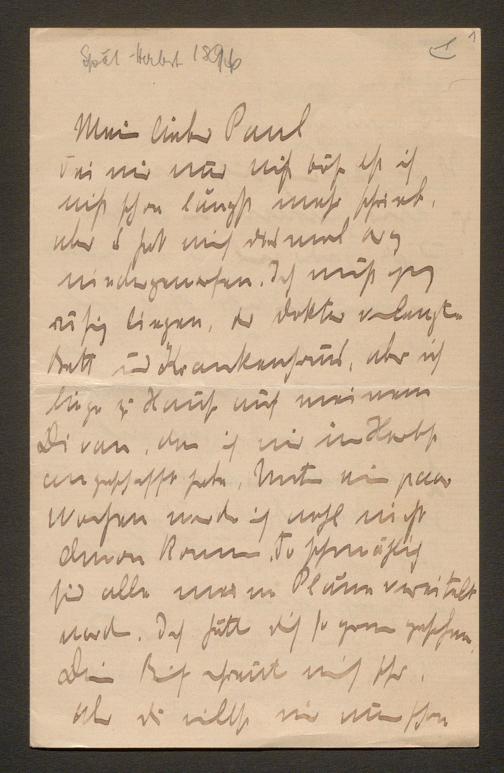 Spät-Herbst 1896
1
Mein lieber Paul
Sei mir nur nicht böse daß ich
nicht schon längst mehr schrieb,
aber es hat mich diesmal arg
niedergeworfen. Ich muß ganz
ruhig liegen, der Doktor verlangte
Bett und Krankenhaus, aber ich
liege zu Hause auf meinem
Divan, den ich mir im Herbst
angeschafft habe. Unter ein paar
Wochen werde ich wohl nicht
davon kommen. So schmählich
sind alle meine Pläne vereitelt
worden. Ich hätte dich so gern gesehen.
Dein Brief freut mich sehr.
Aber du willst mir nun schon